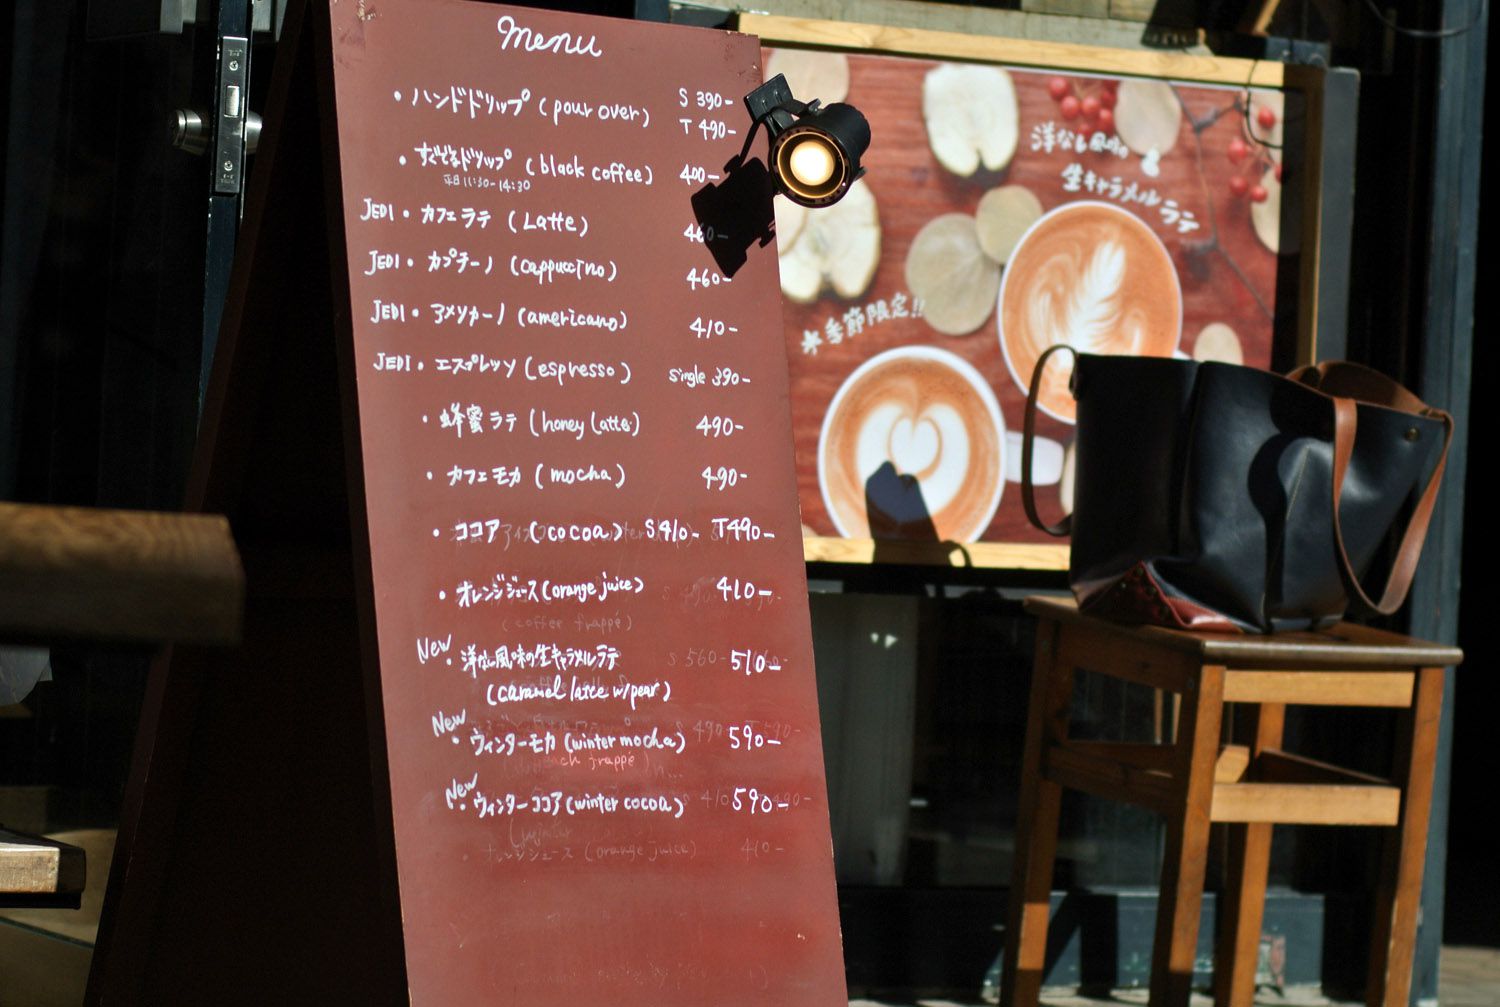 menu
・ハンドドリップ (pour over) S 390-
T 490-
・すぐでるドリップ (black coffee) 400-
平日 11:30-14:30
JEDI・カフェラテ (Latte) 460-
JEDI・カプチーノ (cappuccino) 460-
JEDI・アメリカーノ (americano) 410-
JEDI・エスプレッソ (espresso) single 390-
・蜂蜜ラテ (honey latte) 490-
・カフェモカ (mocha) 490-
・ココア (cocoa) S410- T490-
・オレンジジュース (orange juice) 410-
(coffee frappé)
New・洋なし風味の生キャラメルラテ 510-
S 560-
(caramel latte w/pear)
New・ウィンターモカ (winter mocha) 590-
frappé)
New・ウィンターココア (winter cocoa) 590-
・オレンジジュース (orange juice) 410-
洋なし風味の
生キャラメルラテ
*季節限定!!